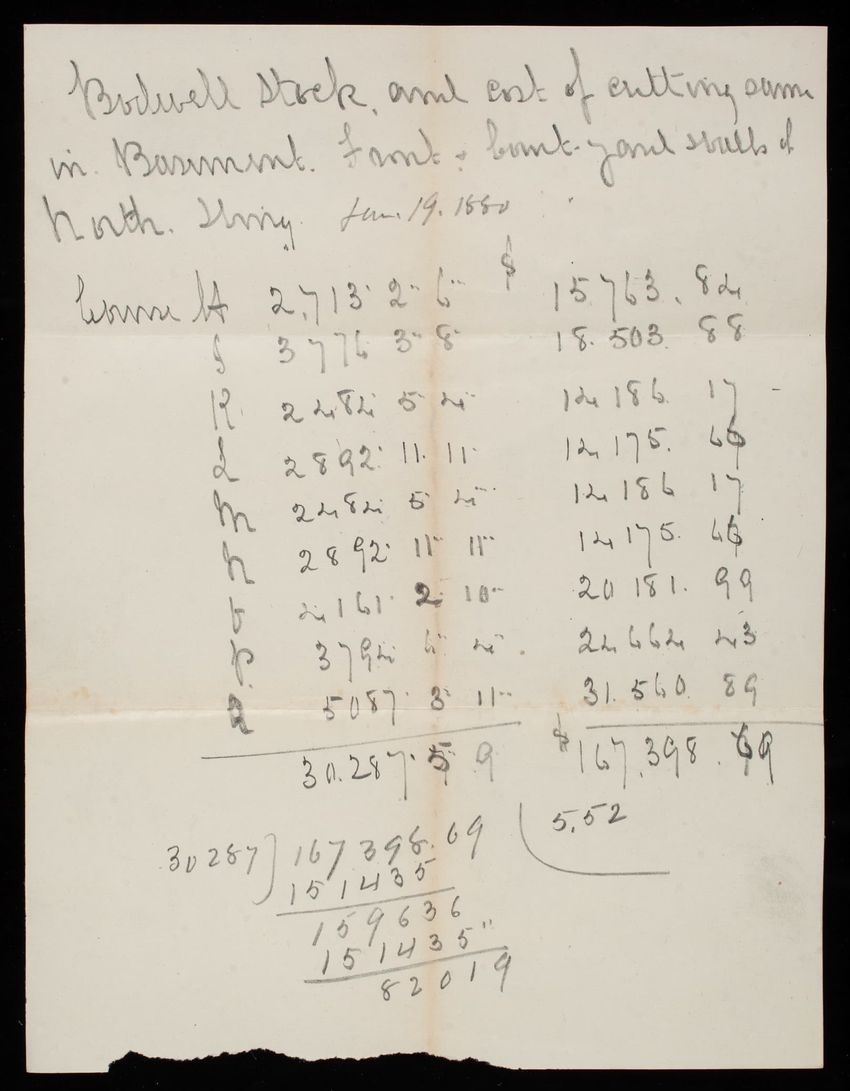 Bodwell stock, and cost of cutting same
in Basement. Front & Court-yard walls of
North. Wing. Jan. 19. 1880
Course H 2,713' 2" 6''' $ 15.763.84
J 3776 3" 8''' 18.503 88
K 2484 5 4''' 14186. 17 -
L 2892' 11. 11. 14175. 66
M 2484 5 4''' 14186 17
N 2892' 11" 11''' 14175. 66
O 4161' 2 10''' 20181. 99
P 3794 6" 4''' 24664 43
Q 5087' 3" 11''' 31.560. 89
30.287' 5 9 $167,398.69
30287) 167398.69 ( 5.52
151435
159636
151435"
82019